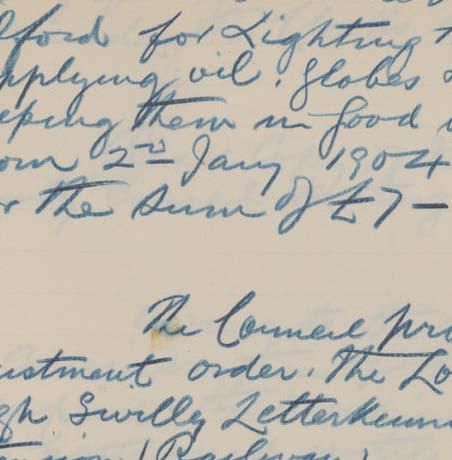 lford for Lighting t
pplying oil. Globes
eeping them in good
om 2nd Jany 1904
r the sum of £7-
The Council pro
ustment order. The Lo
gh Swilly Letterkenn
tension (Railway)